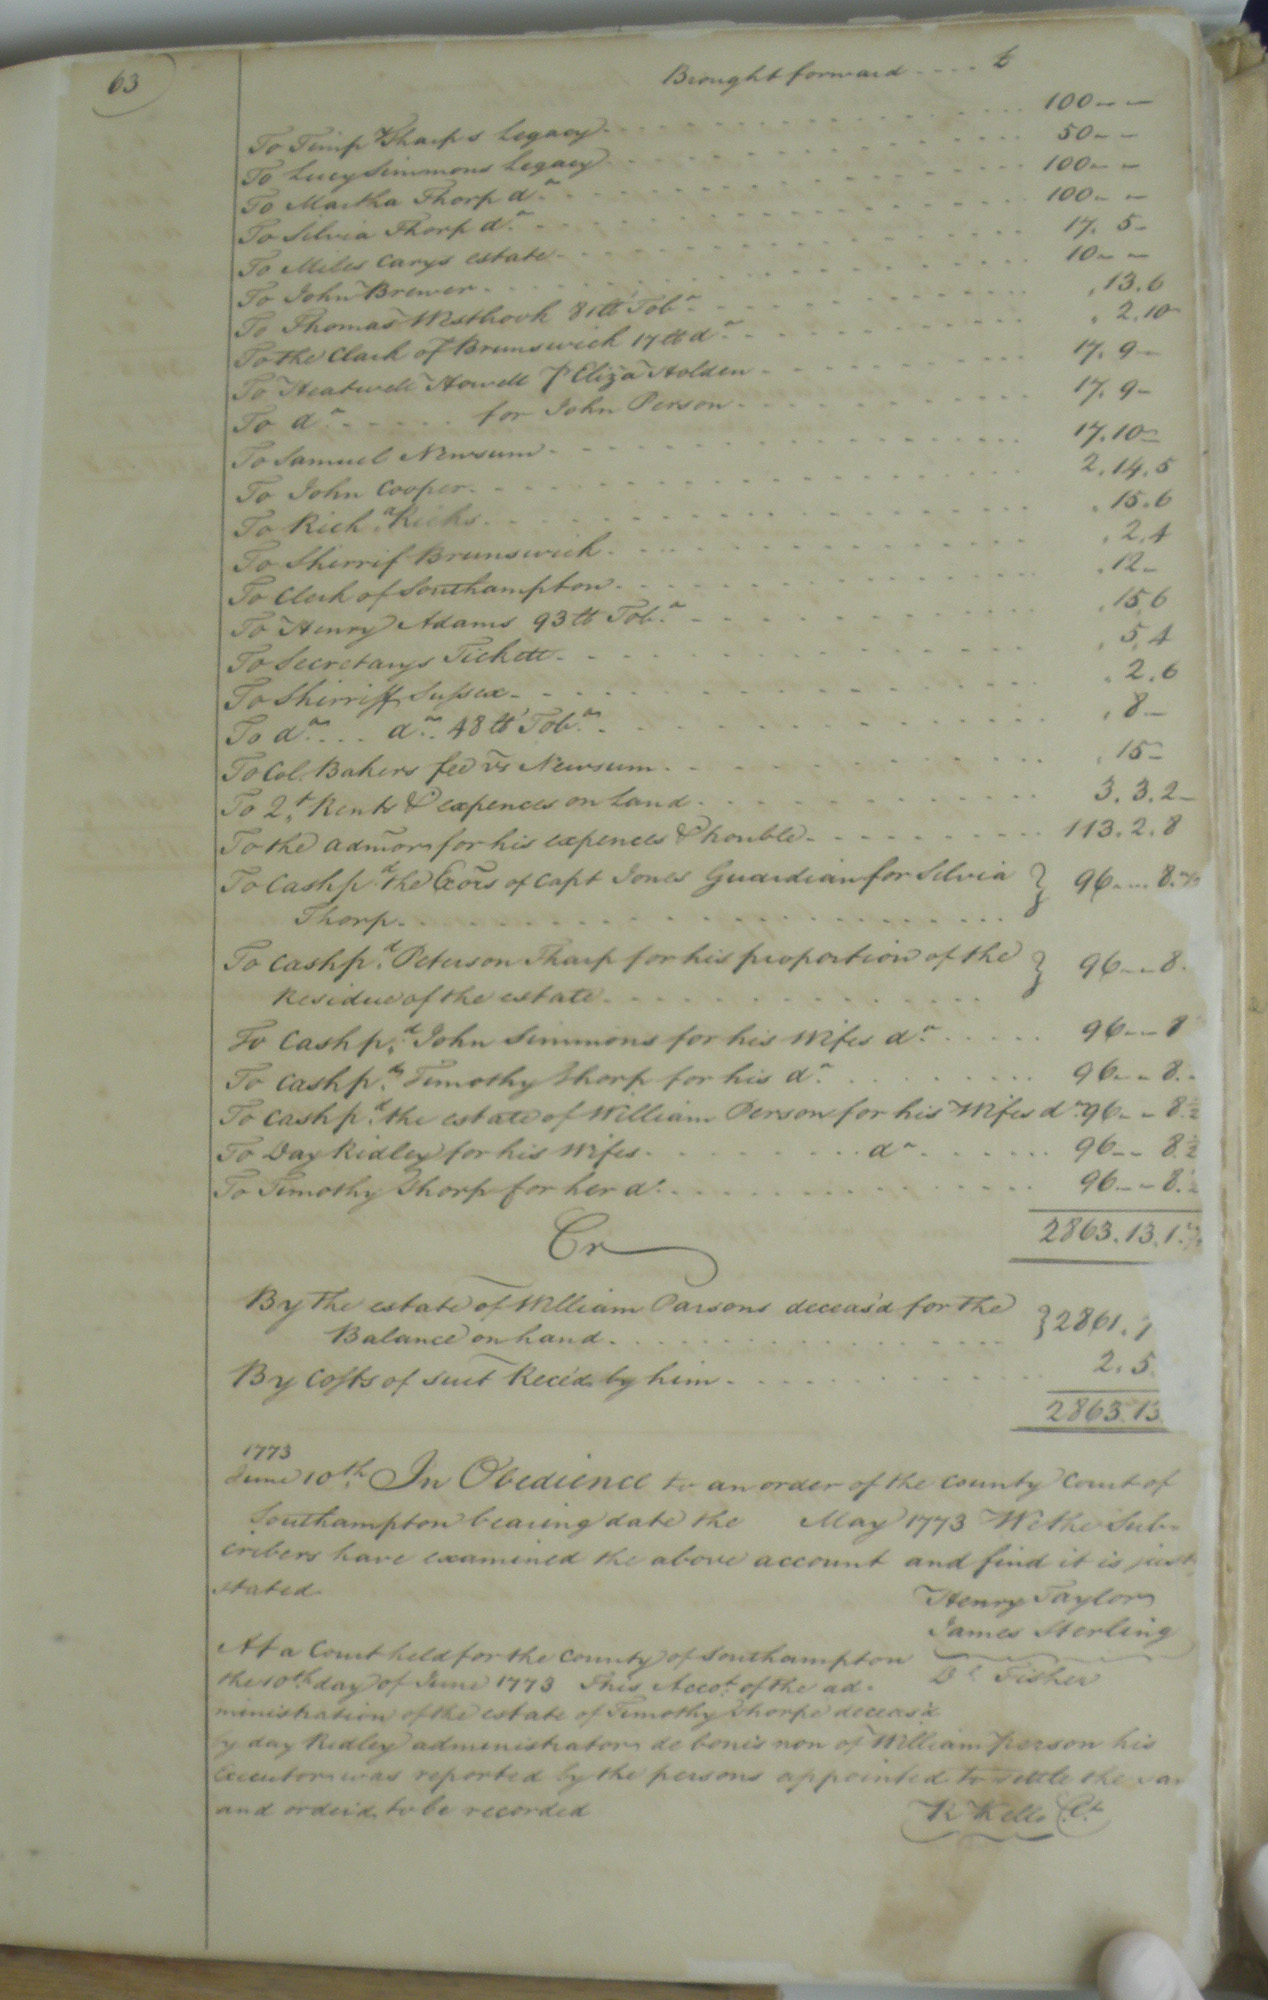 63
Brought forward .... £
To Timp Tharps Legacy. 100 - -
To Lucy Simmons Legacy. 50 - -
To Martha Thorp do. 100 - -
To Silvia Thorp do. 100 - -
To Miles Carys estate. 17. 5 -
To John Brewer. 10 - -
To Thomas Westbrook 81 lb Tobo. , 13. 6
To the Clark of Brunswick 17 lb do. , 2. 10
To Heatwell Howell p Eliza Holden 17. 9 -
To do. for John Person. 17. 9 -
To Samuel Newsum. 17. 10 -
To John Cooper. 2. 14. 5
To Richd. Ricks. , 15. 6
To Sherrif Brunswick. , 2. 4
To Clerk of Southampton. , 12 -
To Henry Adams 93 lb Tobo. , 15. 6
To Secretarys Tickett. , 5. 4
To Shirriff Sussex. , 2. 6
To do. . . . do. 48 lb Tobo. , 8 -
To Col. Bakers fee vs Newsum. , 15 -
To 2t. Rents & expences on Land. 3. 3. 2 -
To the admor. for his expences & trouble. 113. 2. 8
To Cash pd. the Exors of Capt Jones Guardian for Silvia } 96 - - 8. ½
Thorp.
To cash pd. Peterson Tharp for his proportion of the } 96 - - 8.
Residue of the estate.
To Cash pd. John Simmons for his Wifes do. 96 - - 8
To Cash pd. Timothy Thorp for his do. 96 - - 8. -
To cash pd. the estate of William Person for his Wifes do. 96 - - 8. ½
To Day Ridley for his Wifes. do. 96 - - 8. ½
To Timothy Thorp for her do. 96 - - 8. ½
2863. 13. 1. ½
Cr
By the estate of William Parsons deceas'd for the } 2861. 7
Balance on hand.
By Costs of suit Rece'd by him. 2. 5.
2863. 13
1773
June 10th. In Obedience to an order of the County Court of
Southampton bearing date the May 1773 We the Sub-
cribers have examined the above account and find it is just
stated
Henry Taylor
James Sterling
Dl. Fisher
At a Court held for the County of Southampton
the 10th day of June 1773 This Accot. of the ad-
ministration of the estate of Timothy Thorpe deceas'd
by day Ridley administrator de bonis non of William person his
Executor was reported by the persons appointed to settle the
and order'd to be recorded
R Kello Ct.